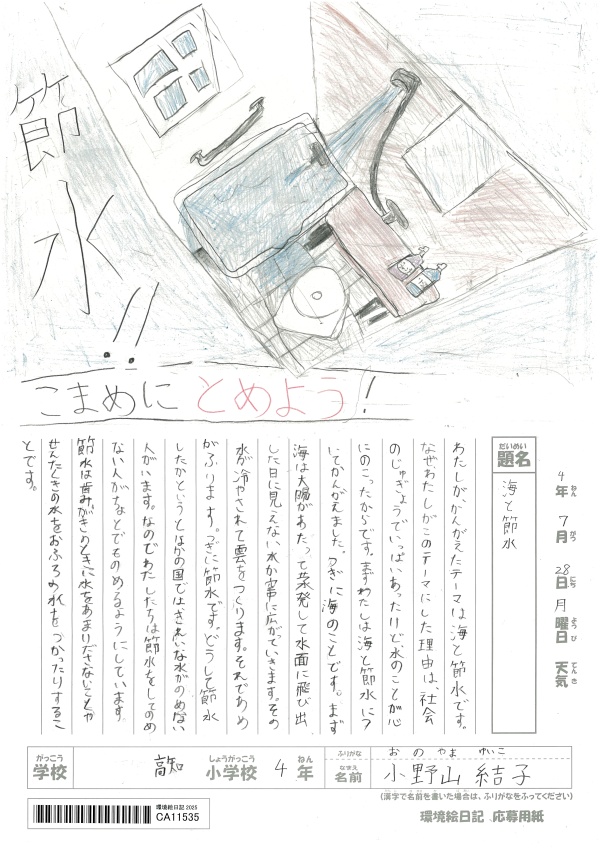 節水!!
こまめにとめよう!
4年 7月 28日 月曜日 天気
ねん がつ にち ようび てんき
だいめい
題名
海と節水
わたしがかんがえたテーマは海と節水です。
なぜわたしがこのテーマにした理由は、社会
のじゅぎょうでいっぱいあったけど水のことが心
にのこったからです。まずわたしは海と節水につ
いてかんがえました。つぎに海のことです。まず
海は太陽があたって蒸発して水面に飛び出
した目に見えない水が空に広がっていきます。その
水が冷やされて雲をつくります。それであめ
がふります。つぎに節水です。どうして節水
したかというとほかの国ではきれいな水がのめない
人がいます。なのでわたしたちは節水をしてのめ
ない人がなとでものめるようにしています。
節水は歯みがきのときに水をあまりださないことや
せんたくきの水をおふろの水をつかったりするこ
とです。
がっこう
学校
高知
しょうがっこう
小学校
4
ねん
年
ふりがな
おのやま ゆいこ
なまえ
名前
小野山 結子
(漢字で名前を書いた場合は、ふりがなをふってください)
環境絵日記 2025
CA11535
環境絵日記 応募用紙